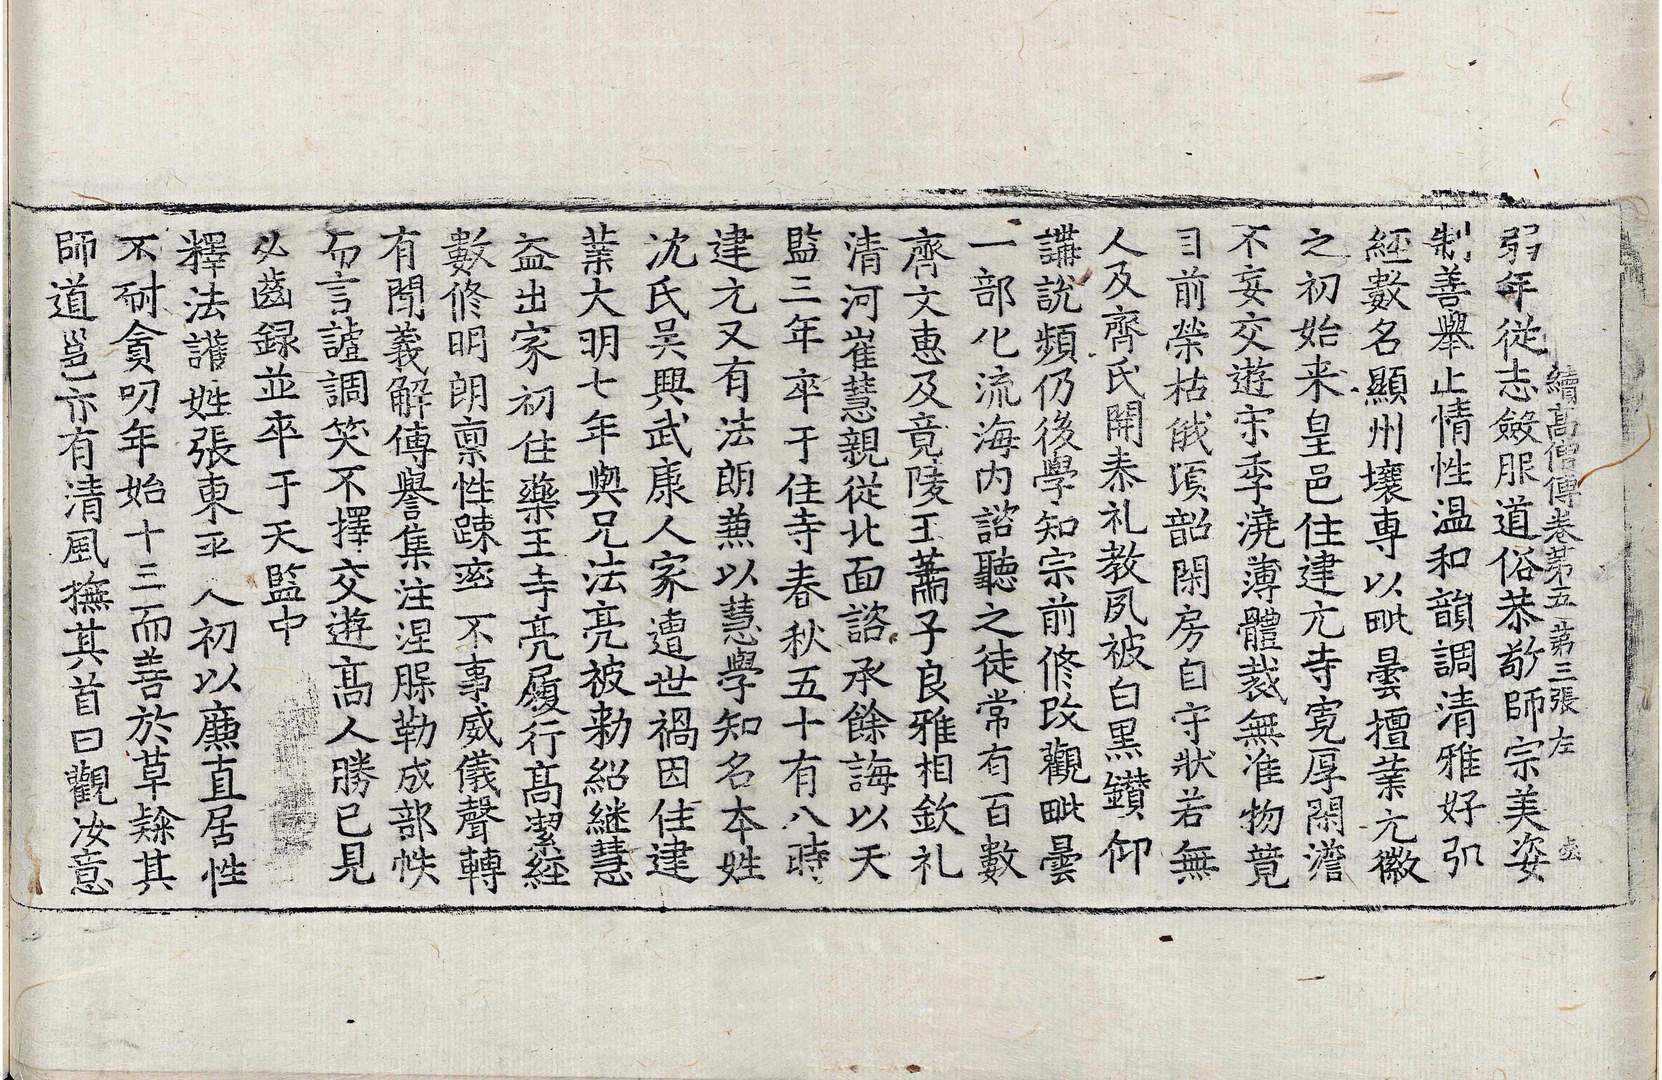 續高僧傳卷第五 第三張 左
弱年從志斂服道俗恭敬師宗美姿
制善舉止情性温和韻調清雅好弘
經數名顯州壤專以毗曇擅業元徽
之初始来皇邑住建元寺寛厚閑澹
不妄交遊宗季澆薄體裁無准物競
目前榮枯俄頃韶閑房自守狀若無
人及齊氏開泰礼教夙被白黒鑽仰
講說頻仍後學知宗前修改觀毗曇
一部化流海内諮聽之徒常有百數
齊文惠及竟陵王蕭子良雅相欽礼
清河崔慧親從北面諮承餘誨以天
監三年卒于住寺春秋五十有八時
建元又有法朗兼以慧學知名本姓
沈氏吴興武康人家遭世禍因住建
業大明七年與兄法亮被勑紹継慧
益出家初住藥王寺亮履行髙潔経
數修明朗禀性踈率不事威儀聲轉
有聞義解傅譽集注涅脲勒成部帙
而言謔調笑不擇交遊髙人勝己見
必齒録並卒于天監中
釋法護姓張東平人初以廉直居性
不耐貪叨年始十三而善於草隸其
師道邕亦有清風撫其首曰觀汝意